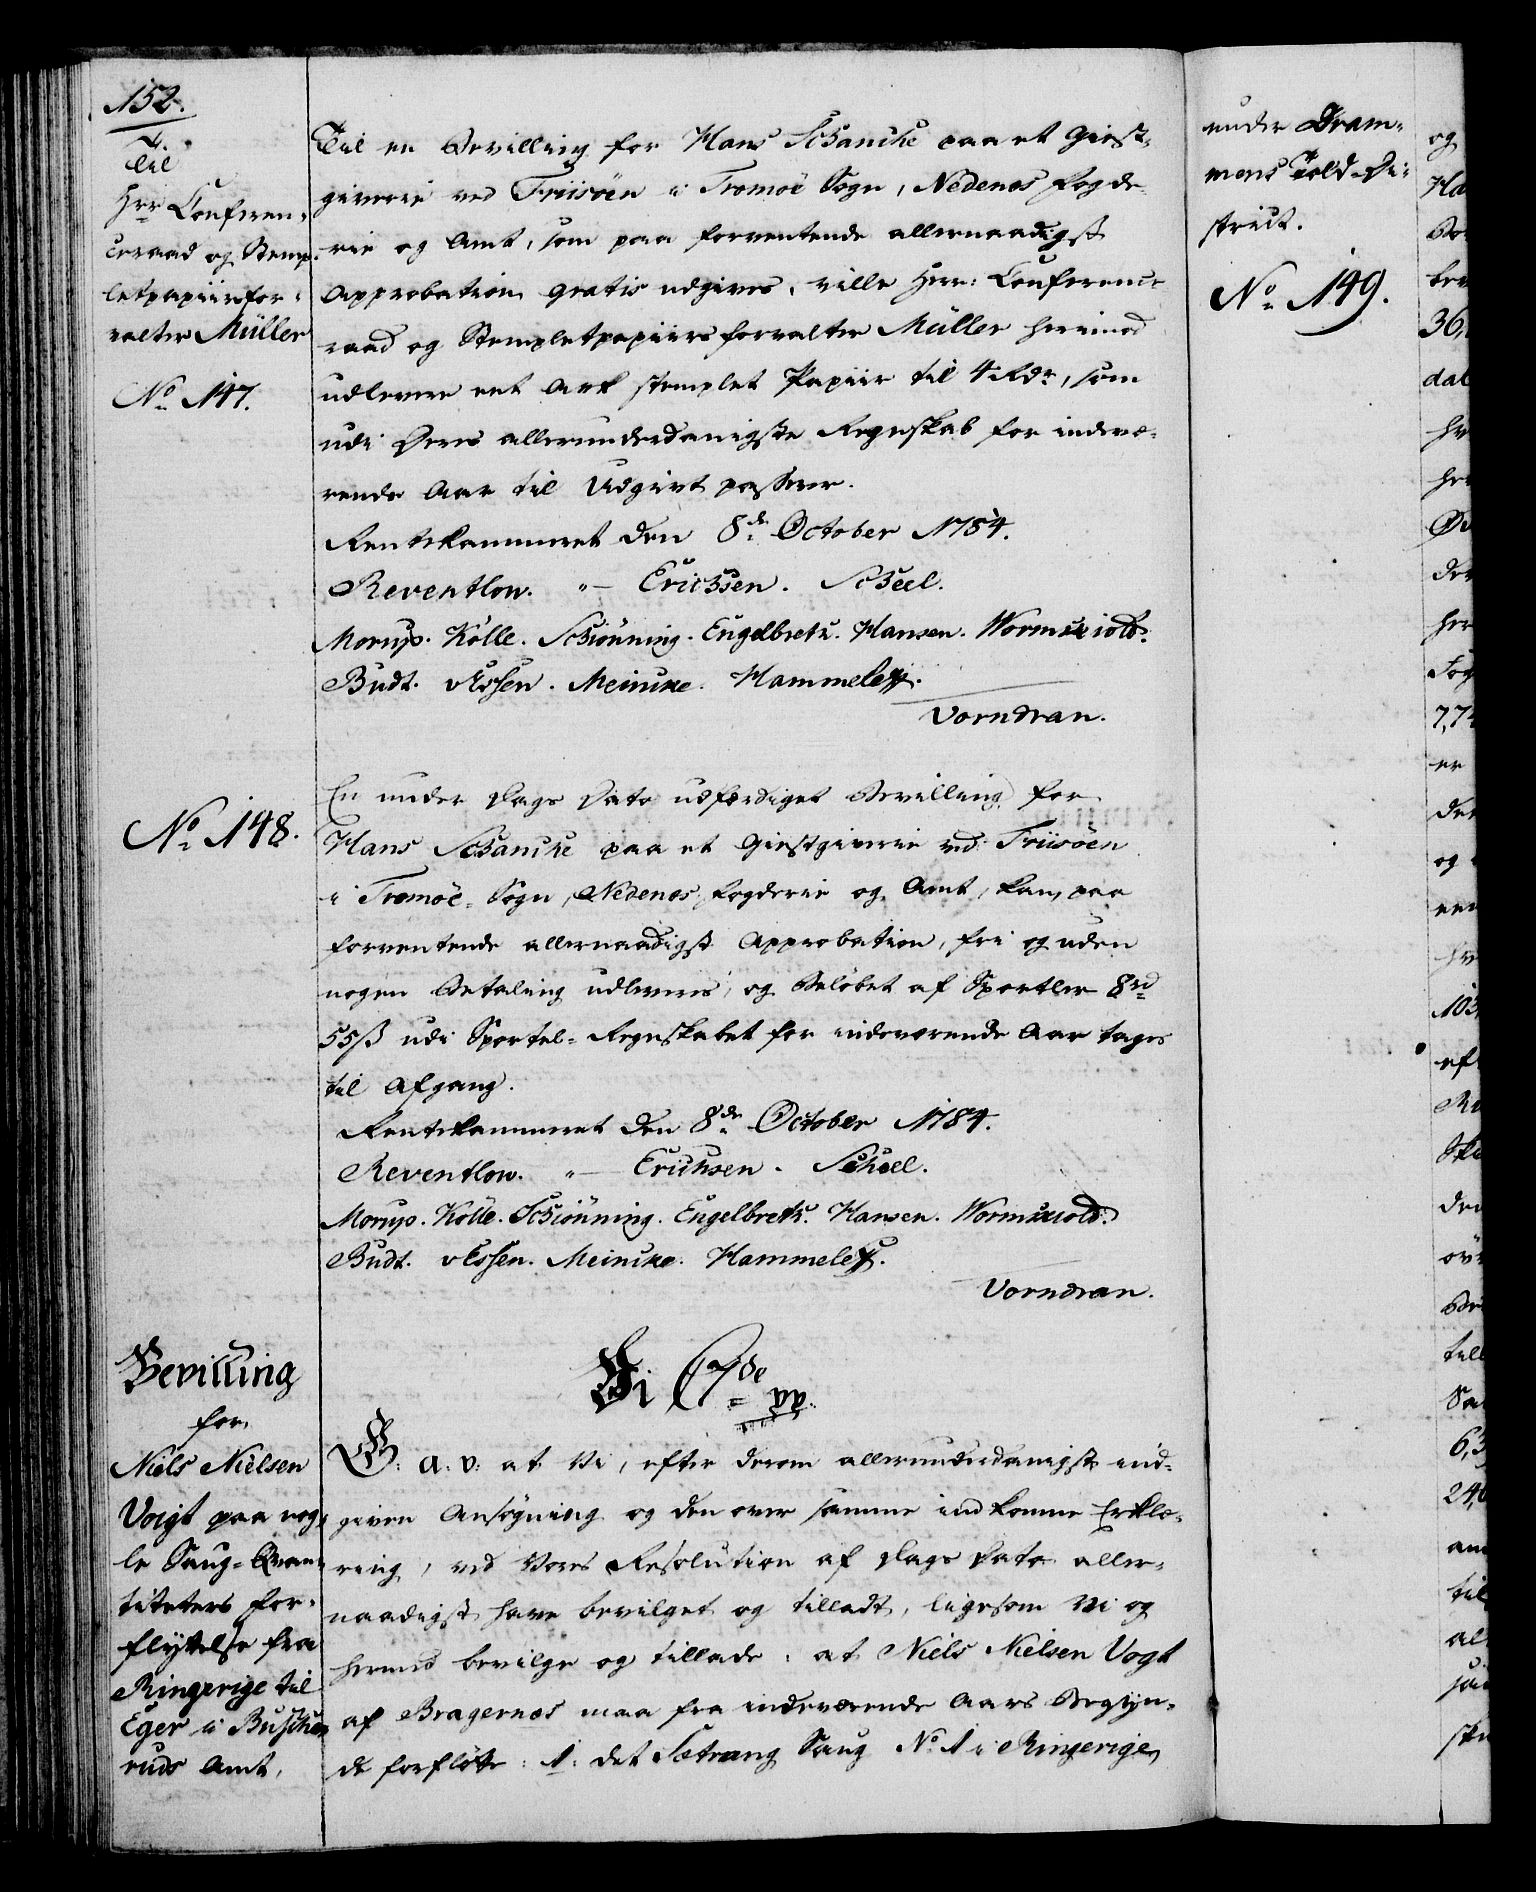 152.
Til
Hrr Conferen-
ceraad og Stemp-
letpapiirsfor-
valter Müller
No 147.
Til en Bevilling for Hans Schancke paa et Giest-
giverie ved Friisöen i Tromöe Sogn, Nedenes Fogde-
rie og Amt, som paa forventende allernaadigst
Approbation gratis udgives, ville Herr: Conference-
raad og Stempletpapiirsforvalter Müller herimod
udlevere eet Ark stemplet Papiir til 4 Rdr, som
udi Deres allerunderdanigste Regnskab for indevæ-
rende Aar til Udgivt passerer.
Rentekammeret den 8de October 1784.
Reventlow. "— Erichsen. Scheel.
Morup. Kölle. Schiönning. Engelbreth. Hansen. Wormskiold.
Budt. v Essen. Meincke. Hammeleff.
Vorndran.
No 148.
En under Dags Dato udfærdiget Bevilling for
Hans Schancke paa et Giestgiverie ved Friisöen
i Tromöe-Sogn, Nedenes Fogderie og Amt, kan, paa
forventende allernaadigst Approbation, fri og uden
nogen Betaling udleveres, og Beløbet af Sportler 8rd
55ß udi Sportel-Regnskabet for indeværende Aar tages
til Afgang.
Rentekammeret den 8de October 1784.
Reventlow. "— Erichsen. Scheel.
Morup. Kölle. Schiönning. Engelbreth. Hansen. Wormskiold.
Budt. v Essen. Meincke. Hammeleff.
Vorndran.
Bevilling
for
Niels Nielsen
Voigt paa nog-
le Saug-Qvan-
titeters for-
flyttelse fra
Ringerige til
Eger i Busche-
ruds Amt,
Vi C 7de pp.
G: a: v: at Vi, efter derom allerunderdanigst ind-
given Ansøgning og den over samme indkomne Erklæ-
ring, ved Vores Resolution af Dags Dato aller-
naadigst have bevilget og tilladt, ligesom Vi og
hermed bevilge og tillade: at Niels Nielsen Vogt
af Bragernæs maa fra indeværende Aars Begyn-
de forfløtte: 1: det Sætrang Saug No 1 i Ringerige
under Dram-
mens Told-Di-
strict.
No 149.